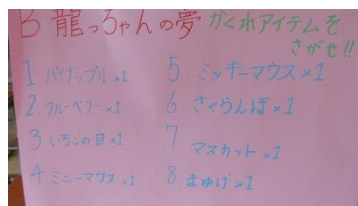 B 龍っちゃんの夢 かくれアイテムを
さがせ!!
1. パイナップル×1
2 ブルーベリー×1
3 いちごの目×1
4 ミニーマウス×1
5. ミッキーマウス×1
6. さくらんぼ×1
7 マスカット×1
8 まゆげ×1